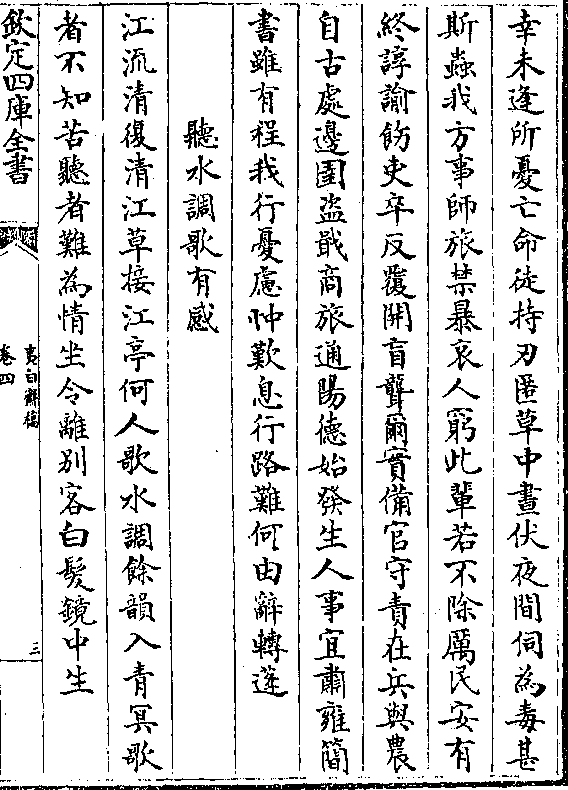 幸未逢所憂亡命徒持刃匿草中晝伏夜間伺為毒甚
斯蟲我方事師旅禁暴哀人窮此輩若不除厲民安有
終諄諭飭吏卒反覆開盲聾爾實備官守責在兵與農
自古處邊圉盜戢商旅通陽德始發生人事宜肅雍簡
書雖有程我行憂慮忡歎息行路難何由辭轉蓬
聽水調歌有感
江流清復清江草接江亭何人歌水調餘韻入青冥歌
者不知苦聽者難為情坐令離別客白髮鏡中生
欽定四庫全書
夷白齋稿
卷四
三